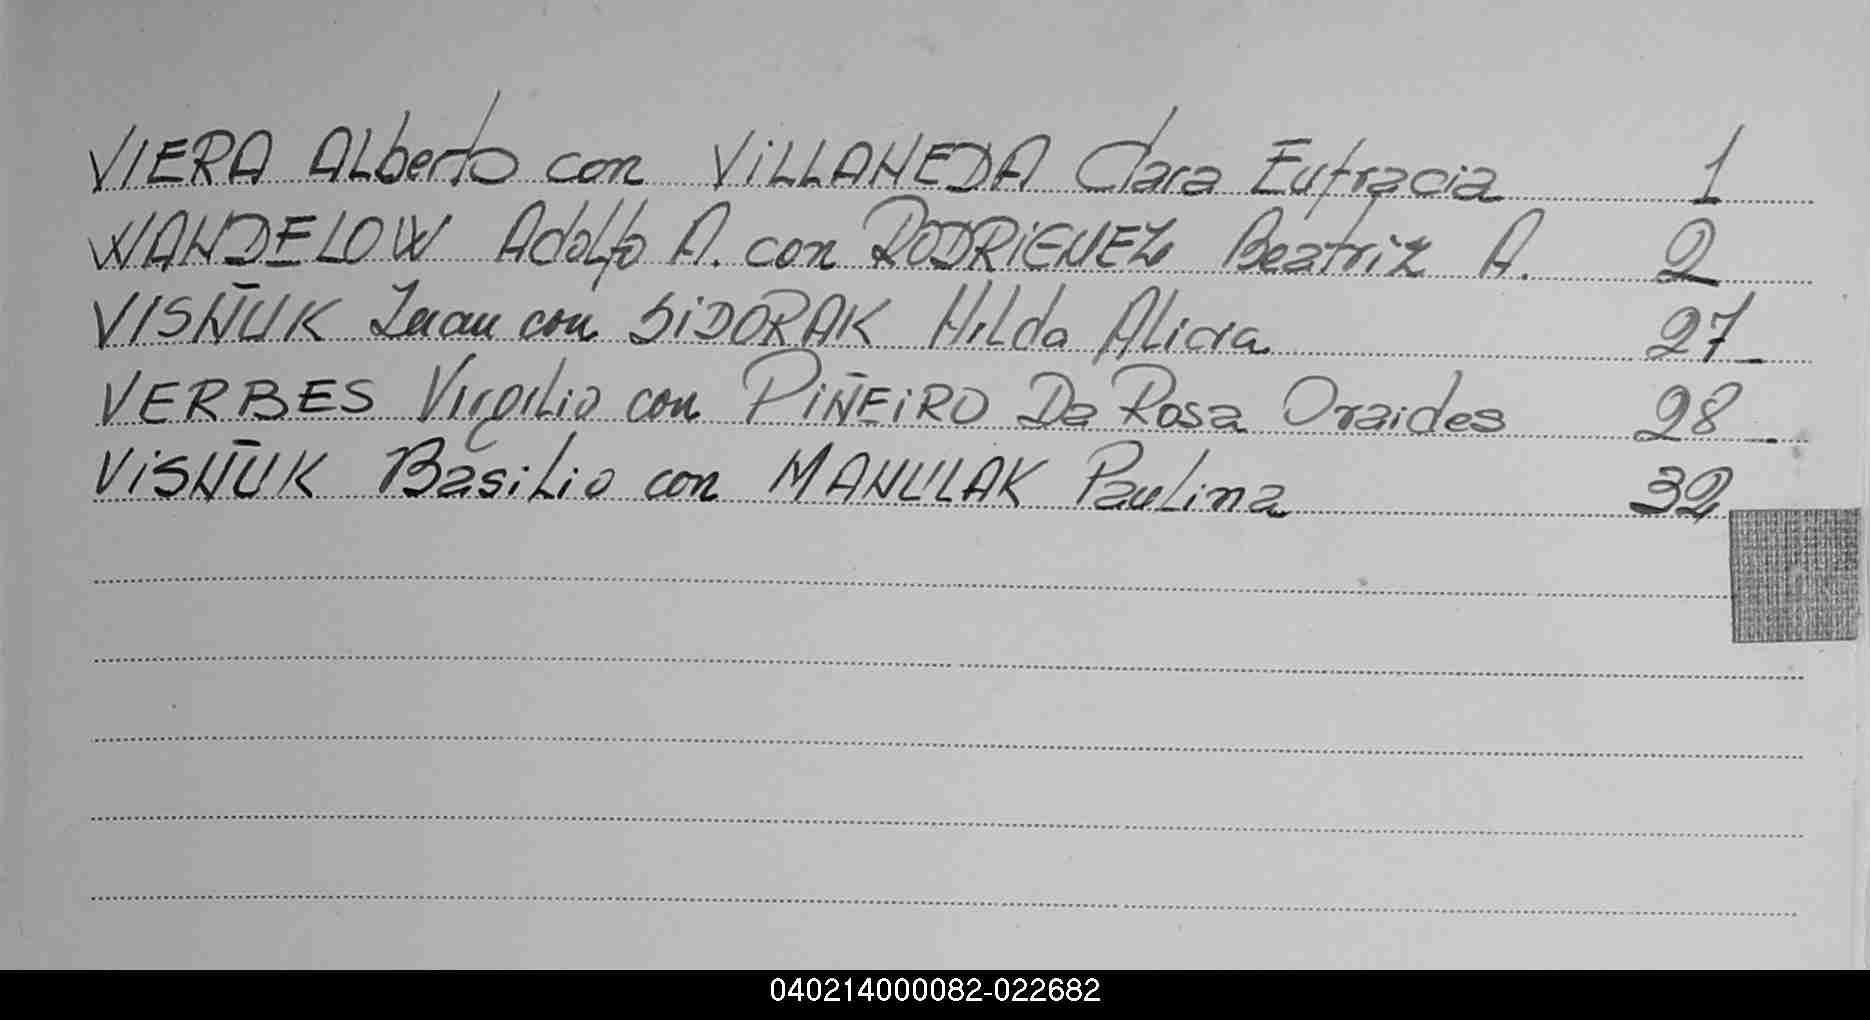 VIERA ALberto con ViLLANEDA Clara Eufracia 1
WANDELOW Adolfo A. con RODRiGUEZ Beatriz A. 2
VISÑUK Juan con SiDORAK HiLda ALicia 27
VERBES VirgiLio con PiÑEiRO Da Rosa Oraides 28
ViSÑUK BasiLio con MANULAK PauLina 32
040214000082-022682